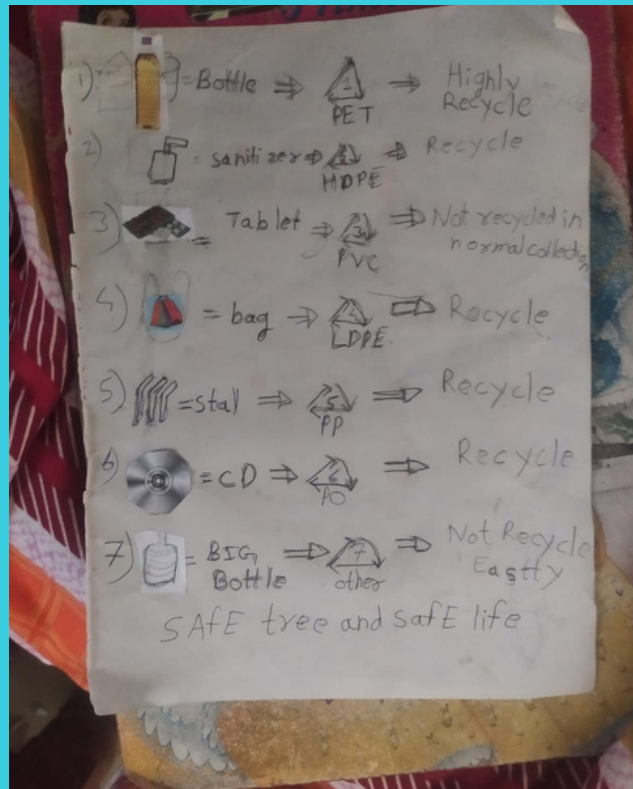 1) = Bottle ⇒ 1 PET ⇒ Highly Recycle
2) = sanitizer ⇒ 2 HDPE ⇒ Recycle
3) = Tablet ⇒ 3 PVC ⇒ Not recycled in normal collection
4) = bag ⇒ 4 LDPE ⇒ Recycle
5) = stal ⇒ 5 PP ⇒ Recycle
6) = CD ⇒ 6 PO ⇒ Recycle
7) = BIG Bottle ⇒ 7 other ⇒ Not Recycle Eastty
SAfE tree and safE life